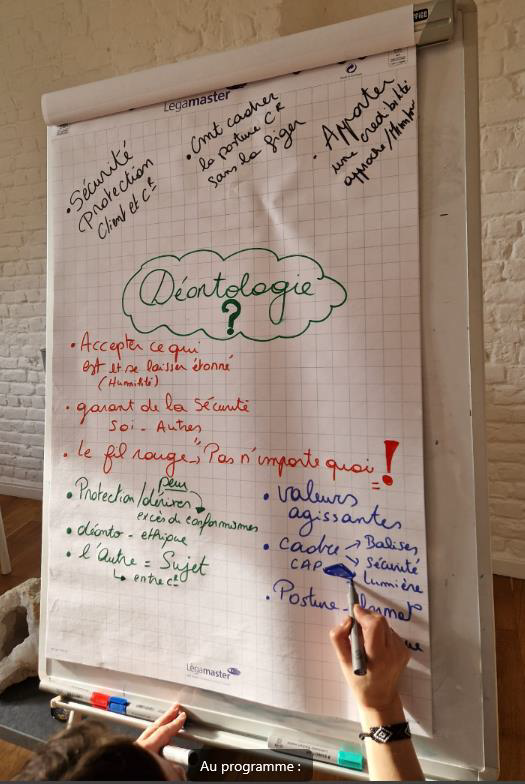 Légamaster
• Sécurité
Protection
Client et Cᴿ
• Cmt cadrer
la posture Cᴿ
sans la figer
• Apporter
une crédibilité
approche/
Déontologie
?
• Accepter ce qui
est et se laisser étonné
(Humilité)
• garant de la sécurité
Soi - Autres
• le fil rouge → "Pas n'importe quoi" !
peur
• Protection/dérives
excès du conformismes
• déonto - ethique
• l'autre = Sujet
↳ entre Cᴿ
• valeurs
agissantes
• cadre → Balises
CAP → Sécurité
Lumière
• Posture -
Légamaster
Au programme :